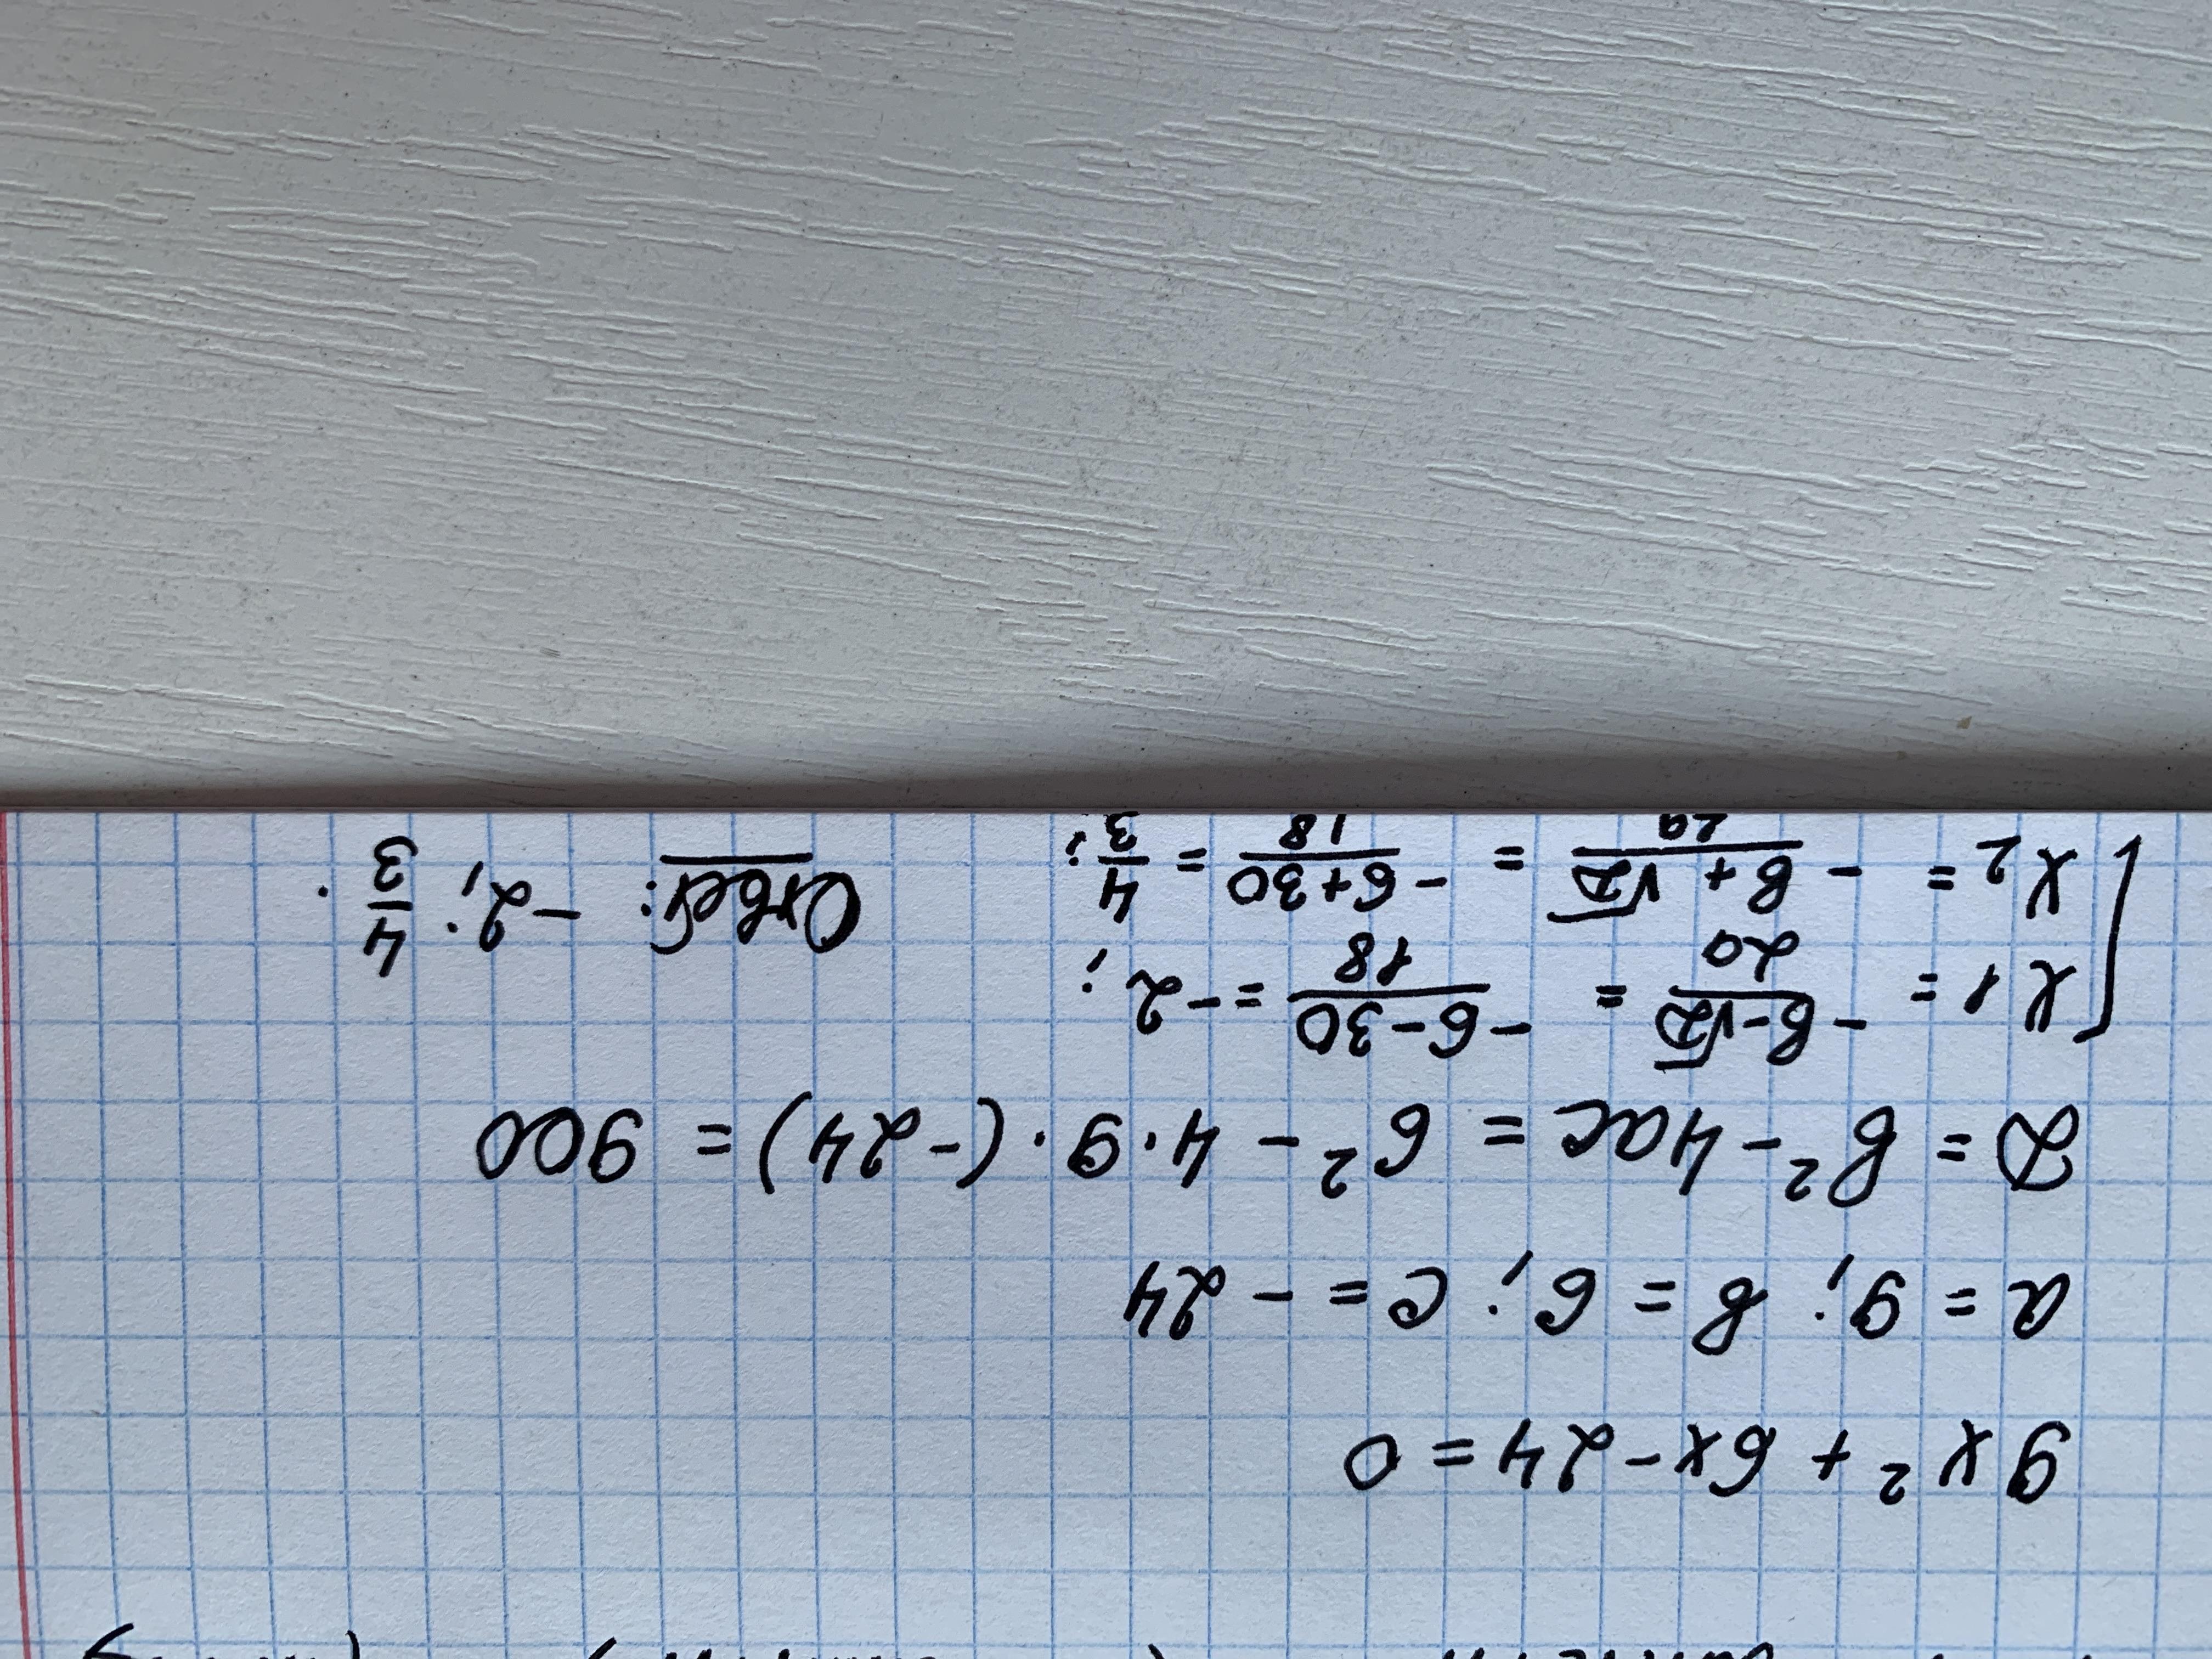 9x² + 6x - 24 = 0
a = 9; в = 6; c = - 24
D = в² - 4ac = 6² - 4·9·(-24) = 900
x1 = -в-√D/2a = -6-30/18 = -2;
x2 = -в+√D/2a = -6+30/18 = 4/3; Ответ: -2; 4/3.